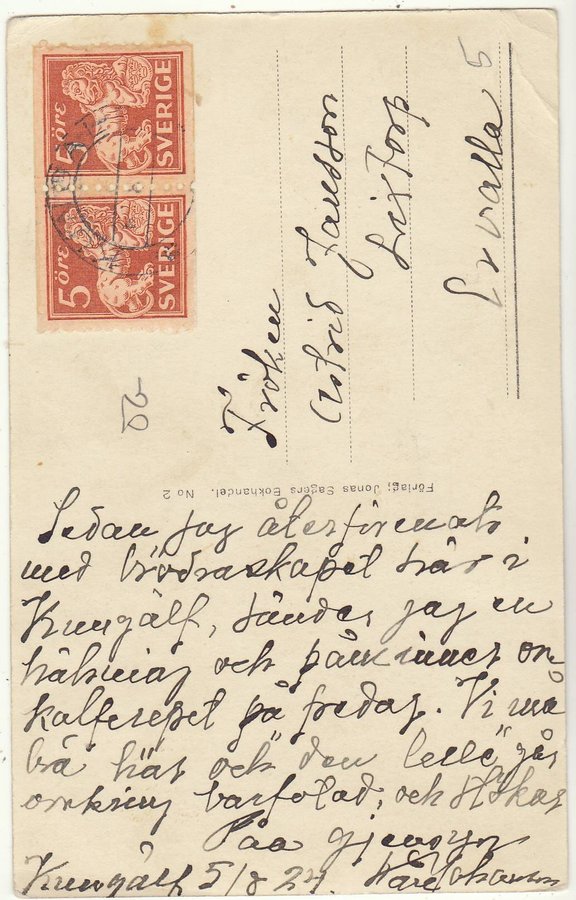 5 ÖRE SVERIGE
5 ÖRE SVERIGE
Fröken
Astrid Jansson
Lixtorp
Ervalla
5
20
Förlag: Jonas Sagers Bokhandel. No 2
Sedan jag återförenats
med brödraskapet här i
Kungälf, sänder jag en
hälsning och påminner om
kalferepet på fredag. Vi må
bra här och "den lelle" går
omkring barfotad, och
Kungälf 5/8 24.